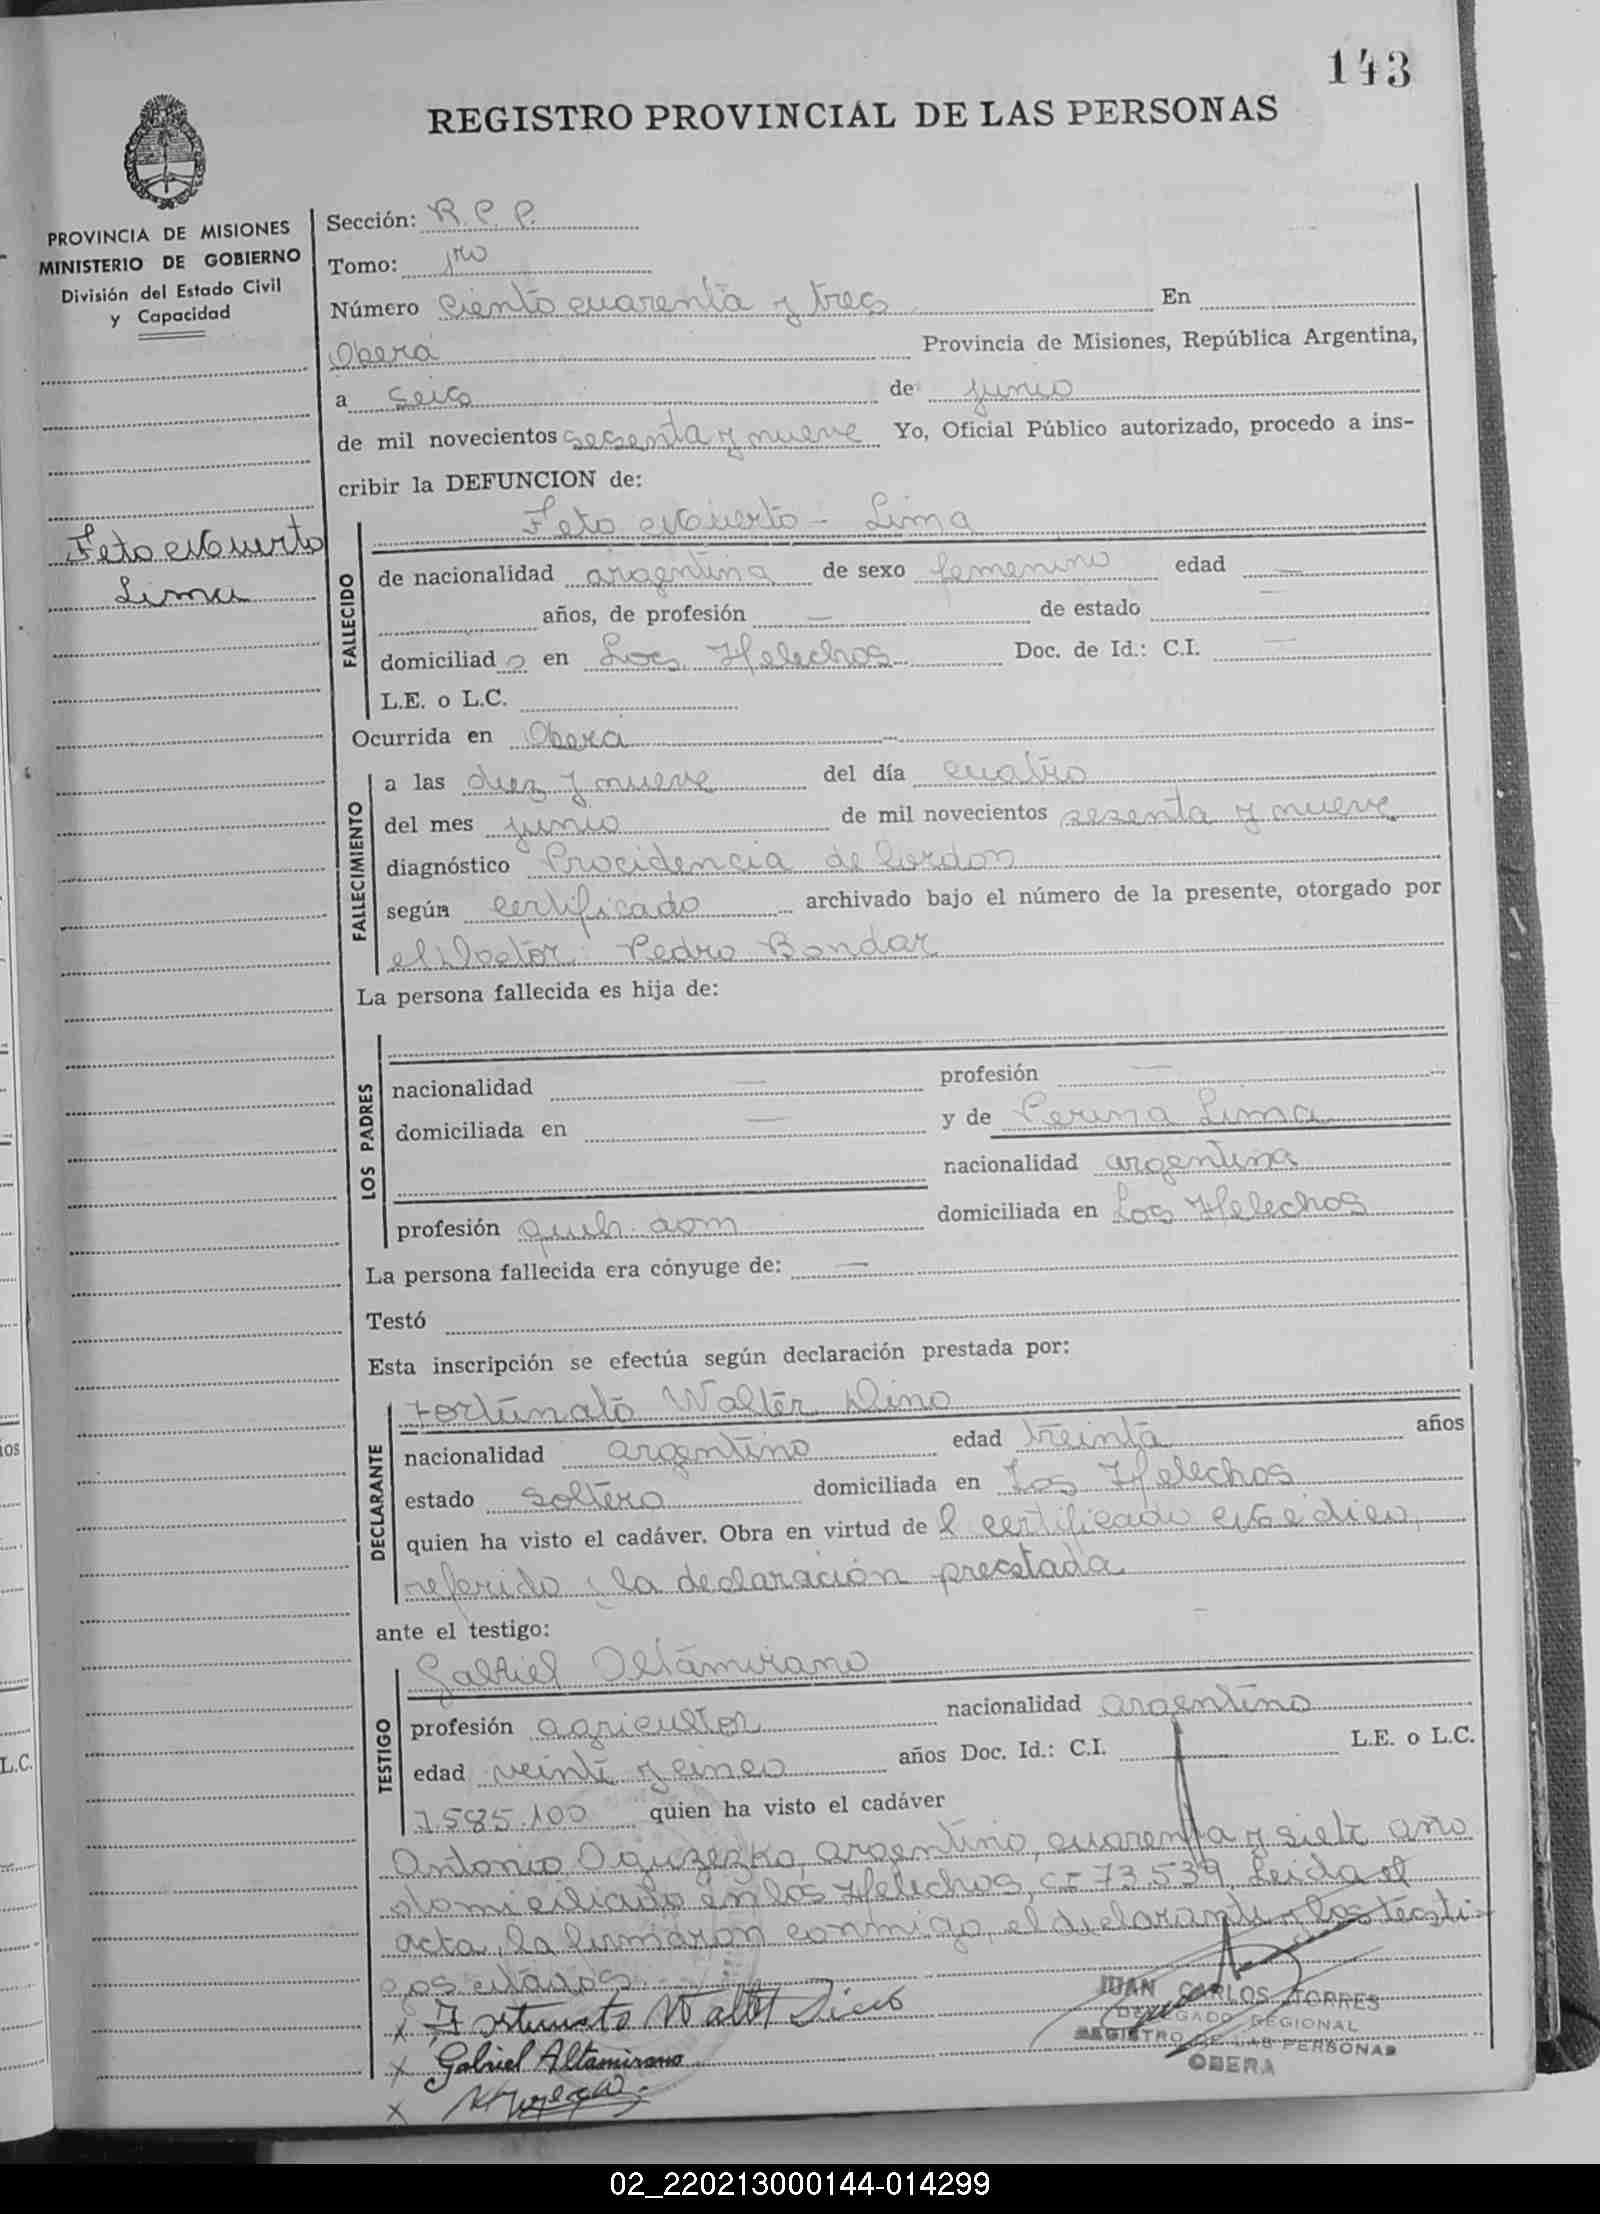 143
REGISTRO PROVINCIAL DE LAS PERSONAS
PROVINCIA DE MISIONES
MINISTERIO DE GOBIERNO
División del Estado Civil
y Capacidad
Feto Muerto
Lima
Sección: R. P. P.
Tomo: 1ro
Número Ciento cuarenta y tres En
Oberá Provincia de Misiones, República Argentina,
a Seis de junio
de mil novecientos sesenta y nueve Yo, Oficial Público autorizado, procedo a ins-
cribir la DEFUNCION de:
FALLECIDO
Feto Muerto - Lima
de nacionalidad argentina de sexo femenino edad —
años, de profesión — de estado —
domiciliad o en Los Helechos Doc. de Id.: C.I. —
L.E. o L.C.
Ocurrida en Oberá
FALLECIMIENTO
a las diez y nueve del día cuatro
del mes junio de mil novecientos sesenta y nueve
diagnóstico Procidencia de Cordon
según certificado archivado bajo el número de la presente, otorgado por
el Doctor: Pedro Bondar
La persona fallecida es hija de:
LOS PADRES
nacionalidad — profesión —
domiciliada en — y de Lima
nacionalidad argentina
profesión queh. dom domiciliada en Los Helechos
La persona fallecida era cónyuge de: —
Testó
Esta inscripción se efectúa según declaración prestada por:
DECLARANTE
Fortunato Walter Dino
nacionalidad argentino edad treinta años
estado soltero domiciliada en Los Helechos
quien ha visto el cadáver. Obra en virtud de l certificado Medico,
referido y la declaración prestada
ante el testigo:
TESTIGO
Gabriel Altamirano
profesión agricultor nacionalidad argentino
edad veinte y cinco años Doc. Id.: C.I. L.E. o L.C.
7.585.100 quien ha visto el cadáver
Antonio argentino, cuarenta y siete año
domiciliado en los Helechos, CI 73.539, Leida el
acta, la firmaron conmigo, el declarante y los testi-
gos citados.
x Fortunato Walter Dino
x Gabriel Altamirano
x
JUAN CARLOS TORRES
DELEGADO REGIONAL
REGISTRO DE LAS PERSONAS
OBERA
02_220213000144-014299